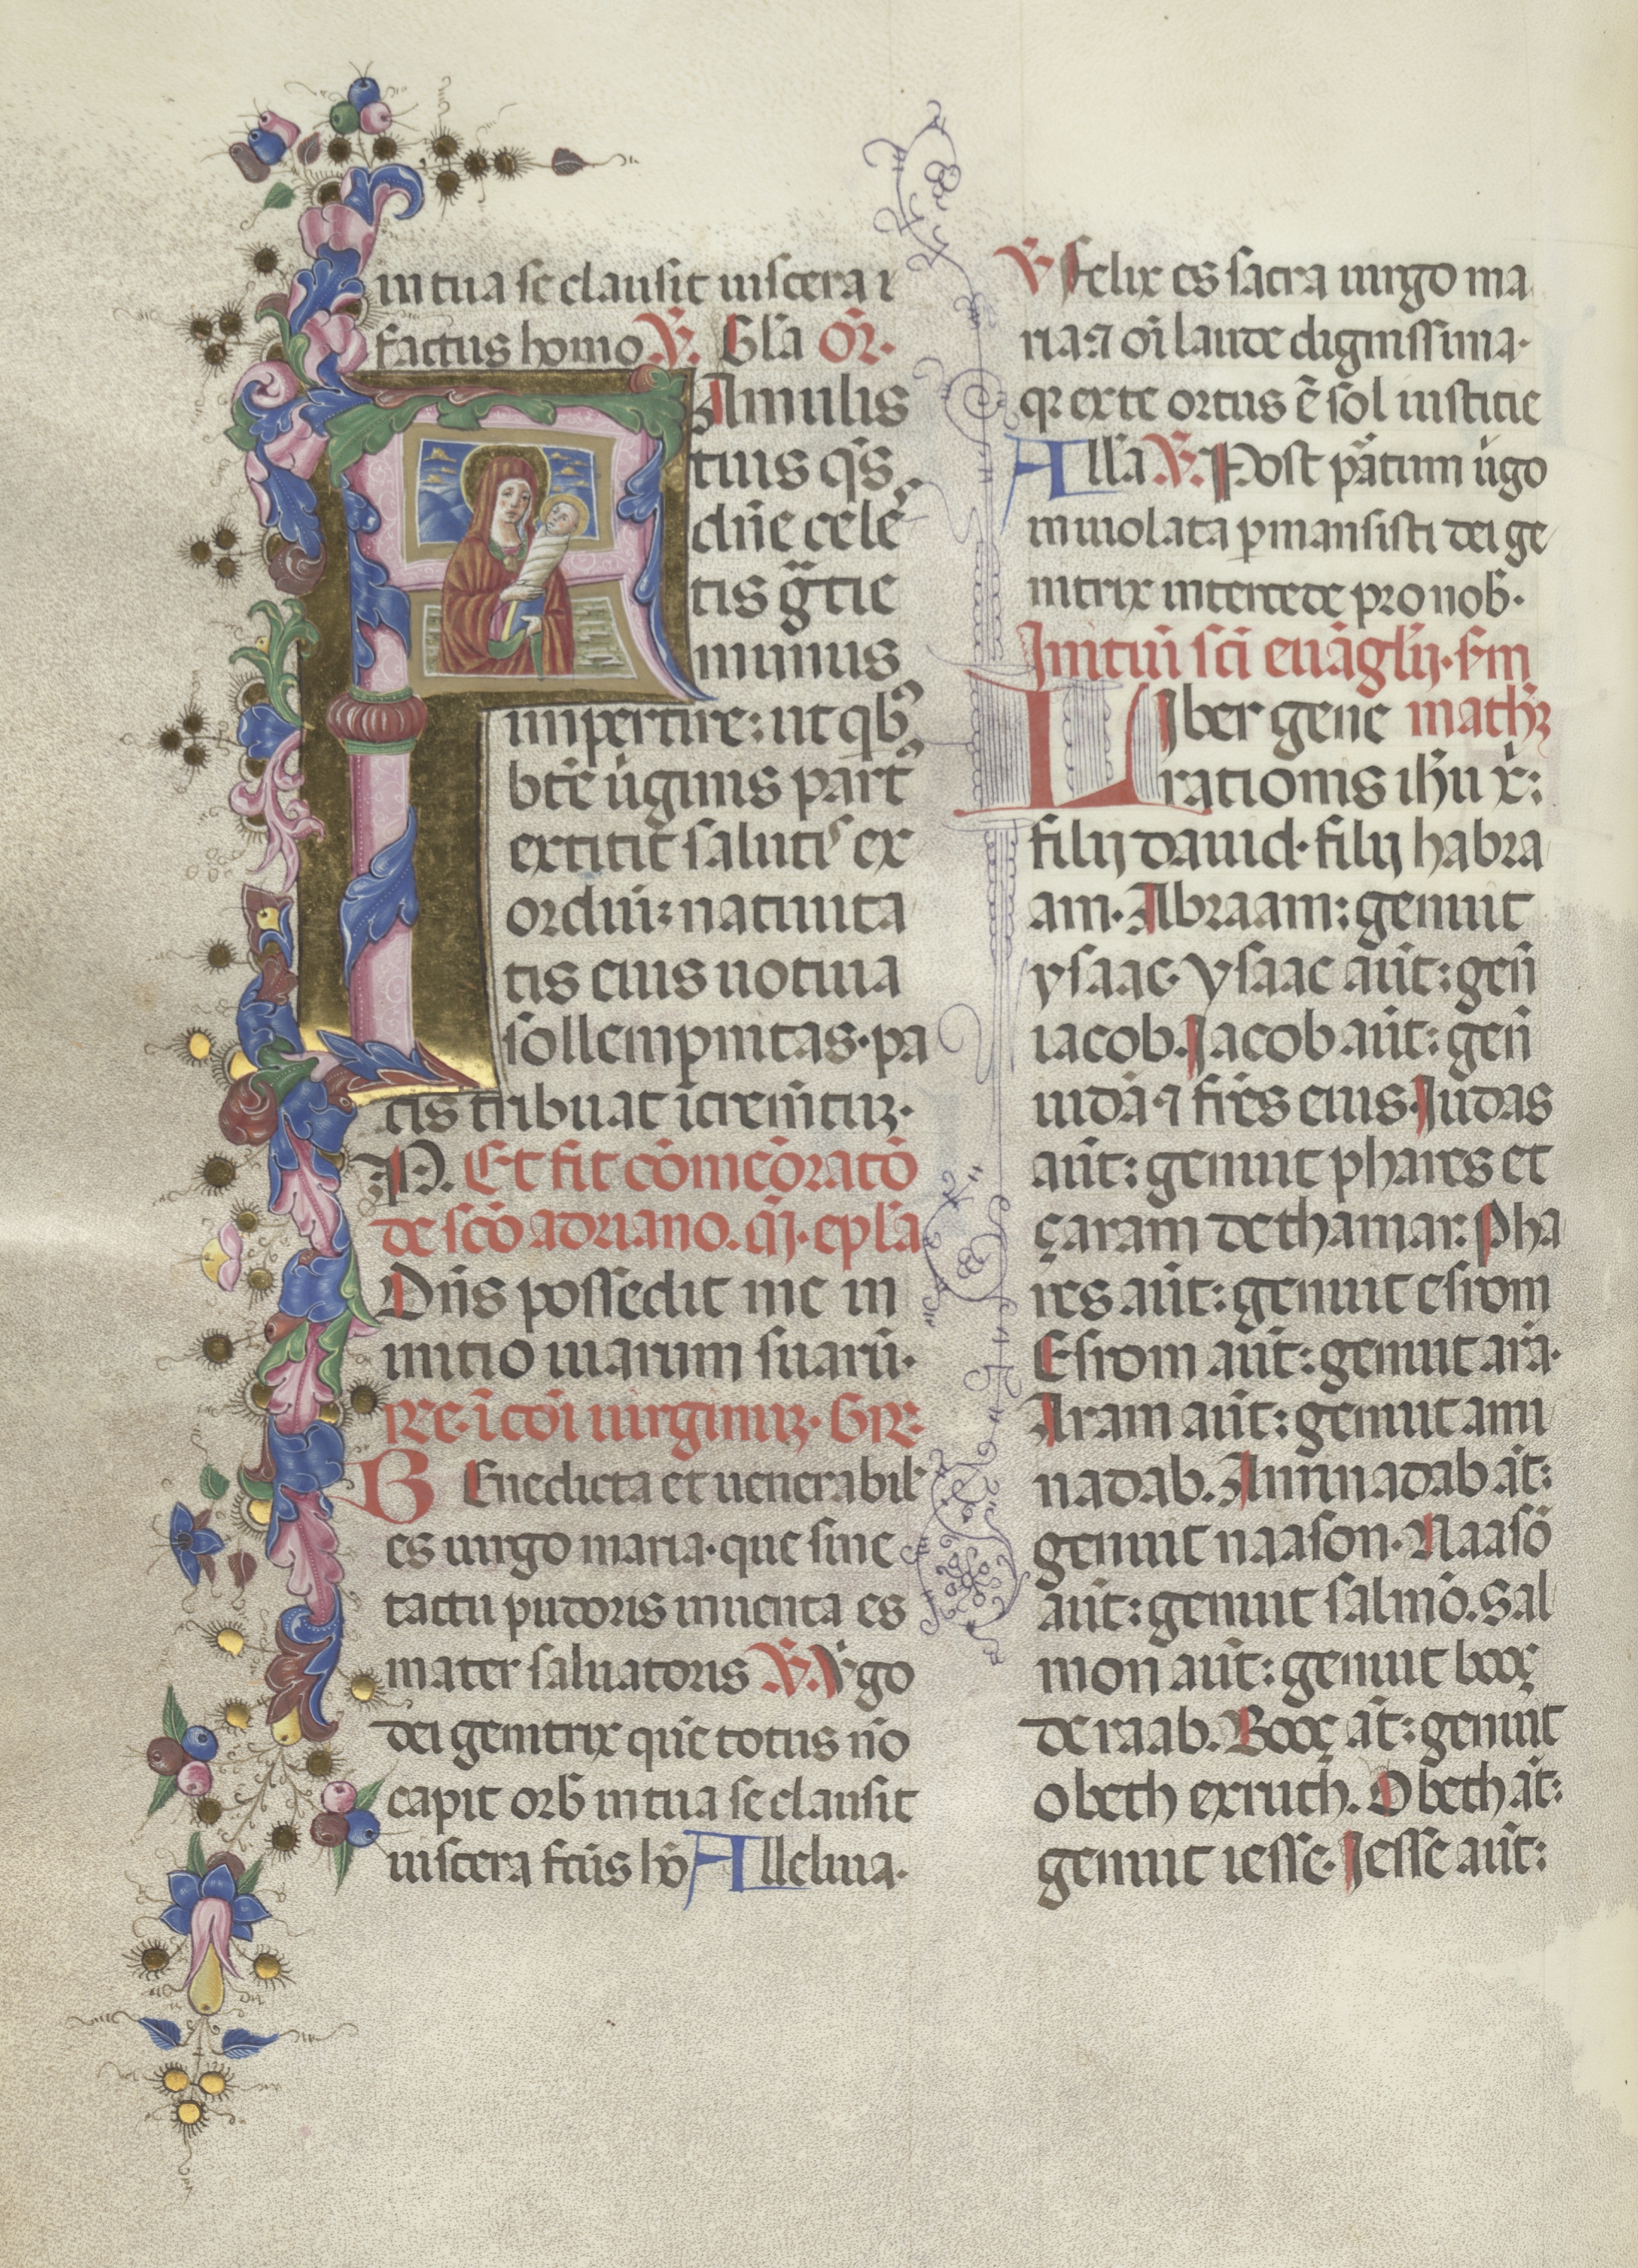 in tua se clausit uiscera ⁊
factus homo. V̄. Gl̄a Or̄.
FAmulis
tuis qs̄
dn̄e cele
tis gr̄tie
munus
impertire: ut qb᷒
bt̄e u̇ginis part᷒
extitit saluti᷒ ex
ordiū: natiuita
tis eius uotiua
sollempnitas. pa
cis tribuat īcrem̄tuꝫ.
P. Et fit cōmeōratō
de scō adriano. q̄j. epl̄a
Dn̄s possedit me in
initio uiarum suarū.
rr̄e. ī cōi uirginuꝫ. Gr̄.
BEnedicta et uenerabil᷒
es uirgo maria. que sine
tactu pudoris inuenta es
mater saluatoris V̄. V̇go
dei genitrix quē totus nō
capit orb᷒ in tua se clausit
uiscera fc̄us hō Alleluia.
V̄ Felix es sacra uirgo ma
ria: ⁊ oī laude dignissima.
qꝛ ex te ortus ē sol iustitie
All̄a V̄. Post pa̅tum u̇go
inuiolata ꝑmansisti dei ge
nitrix intercede pro nob᷒.
Initiū sc̄i euāgl̄ij. s̄m
LIber gene math̄ꝫ
rationis ih̄u x̄:
filij dauid. filij habra
am. Abraam: genuit
ysaac. Ysaac aūt: geñ
iacob. Jacob aūt: geñ
iudā ⁊ fr̄es eius. Judas
aūt: genuit phares et
çaram de thamar. Pha
res aūt: genuit esrom
Esrom aūt: genuit arā.
Aram aūt: genuit ami
nadab. Aminadab āt:
genuit naason. Naasō
aūt: genuit salmō. Sal
mon aūt: genuit booç
de raab. Booç āt: genuit
obeth ex ruth. Obeth āt:
genuit iesse. Jesse aūt: